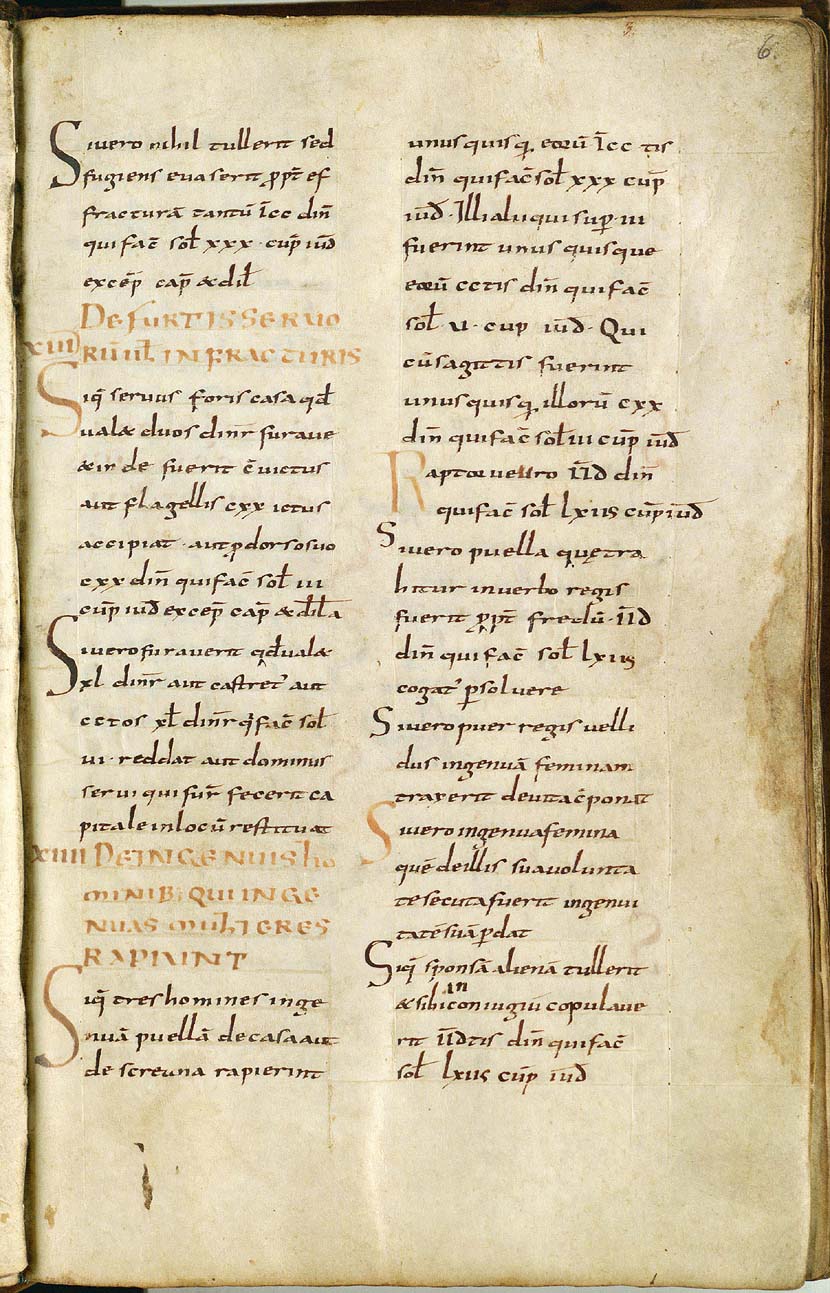 6.
Si uero nihil tullerit sed
fugiens euaserit ꝓpt̄ ef
fracturā tantū īcc din̄
qui fac̄ sol̄ xxx · cup̄ iud̄
excep̄ cap̄ & dil̄
DE FURTIS SERUO
XIII RŪ ul̄ IN FRACTURIS
Siq̄ seruus foris casa qd̄
ualæ duos dinr̄ furaue
& inde fuerit c̄uictus
aut flagellis cxx ictus
accipiat · aut ꝓ dorso suo
cxx din̄ qui fac̄ sol̄ iii
cup̄ iud̄ excep̄ cap̄ & dil̄a
Si uero furauerit qd̄ ualæ
xl dinr̄ aut castret̄ aut
cctos xl̄ dinr̄ q̄ fac̄ sol̄
ui · reddat aut dominus
serui qui furt̄ fecerit ca
pitale in locū restituat
XIIII DE INGENUIS ho
MINIB; QUI INGE
NUAS MULIERES
RAPIUNT
Siq̄ tres homines inge
nuā puellā de casa aut
de screuna rapierint
unusquisq; eorū īcc tis
din̄ qui fac̄ sol̄ xxx cup̄
iud̄ · Illi alii qui sup̄ iii
fuerint unusquisque
eorū cctis din̄ qui fac̄
sol̄ · u · cup̄ iud̄ · Qui
cū sagittis fuerint
unusquisq; illorū cxx
din̄ qui fac̄ sol̄ iii cup̄ iud̄
Raptor uero īīd din̄
qui fac̄ sol̄ lxiis cup̄ iud̄
Si uero puella quę tra
hitur in uerbo regis
fuerit ꝓpt̄ fredū · īīd
din̄ qui fac̄ sol̄ lxiis
cogat̄ ꝑsoluere
Si uero puer regis uel li
dus ingenuā feminam
traxerit de uita c̄ponat
Si uero ingenua femina
quē de illis sua uolunta
te secuta fuerit ingenui
tatē suā ꝑdat
Siq̄ sponsā alienā tullerit
& sibi in coniugiū copulaue
rit īīdtis din̄ qui fac̄
sol̄ lxiis cup̄ iud̄